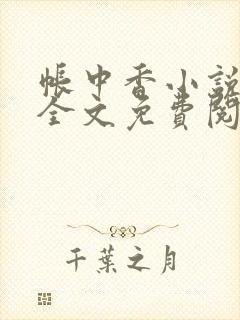 帳中香小說
全文免費閱
千葉之月